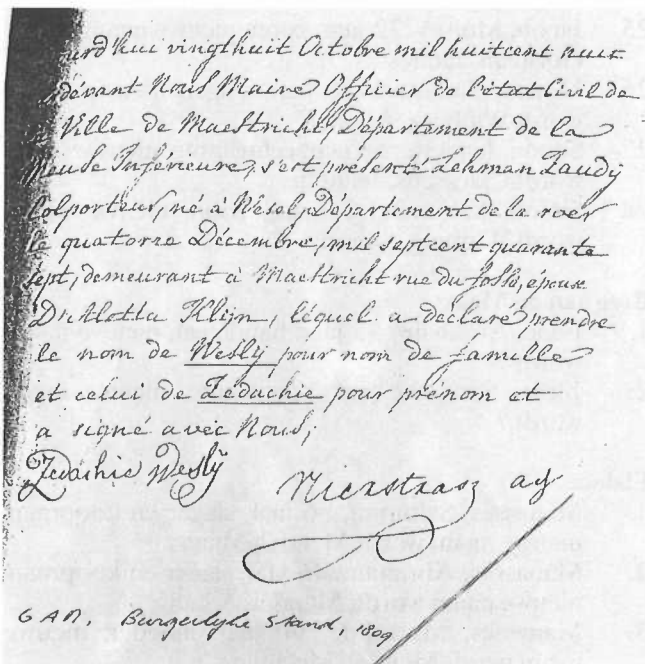 ourd'hui vingthuit Octobre mil huitcent huit
devant Nous Maire Officier de l'état Civil de
Ville de Maestricht, Département de la
Meuse Inférieure, s'est présenté Lehman Laudy
Colporteur, né à Wesel, Département de la roer
le quatorze Décembre, mil septcent quarante
sept, demeurant à Maestricht rue du fossé, époux
Klijn, lequel a déclaré prendre
le nom de Weslÿ pour nom de famille
et celui de Zedachie pour prénom et
a signé avec Nous,
Zedachie Weslÿ
Nierstrasz adj
G A M. Burgerlyke Stand, 1809